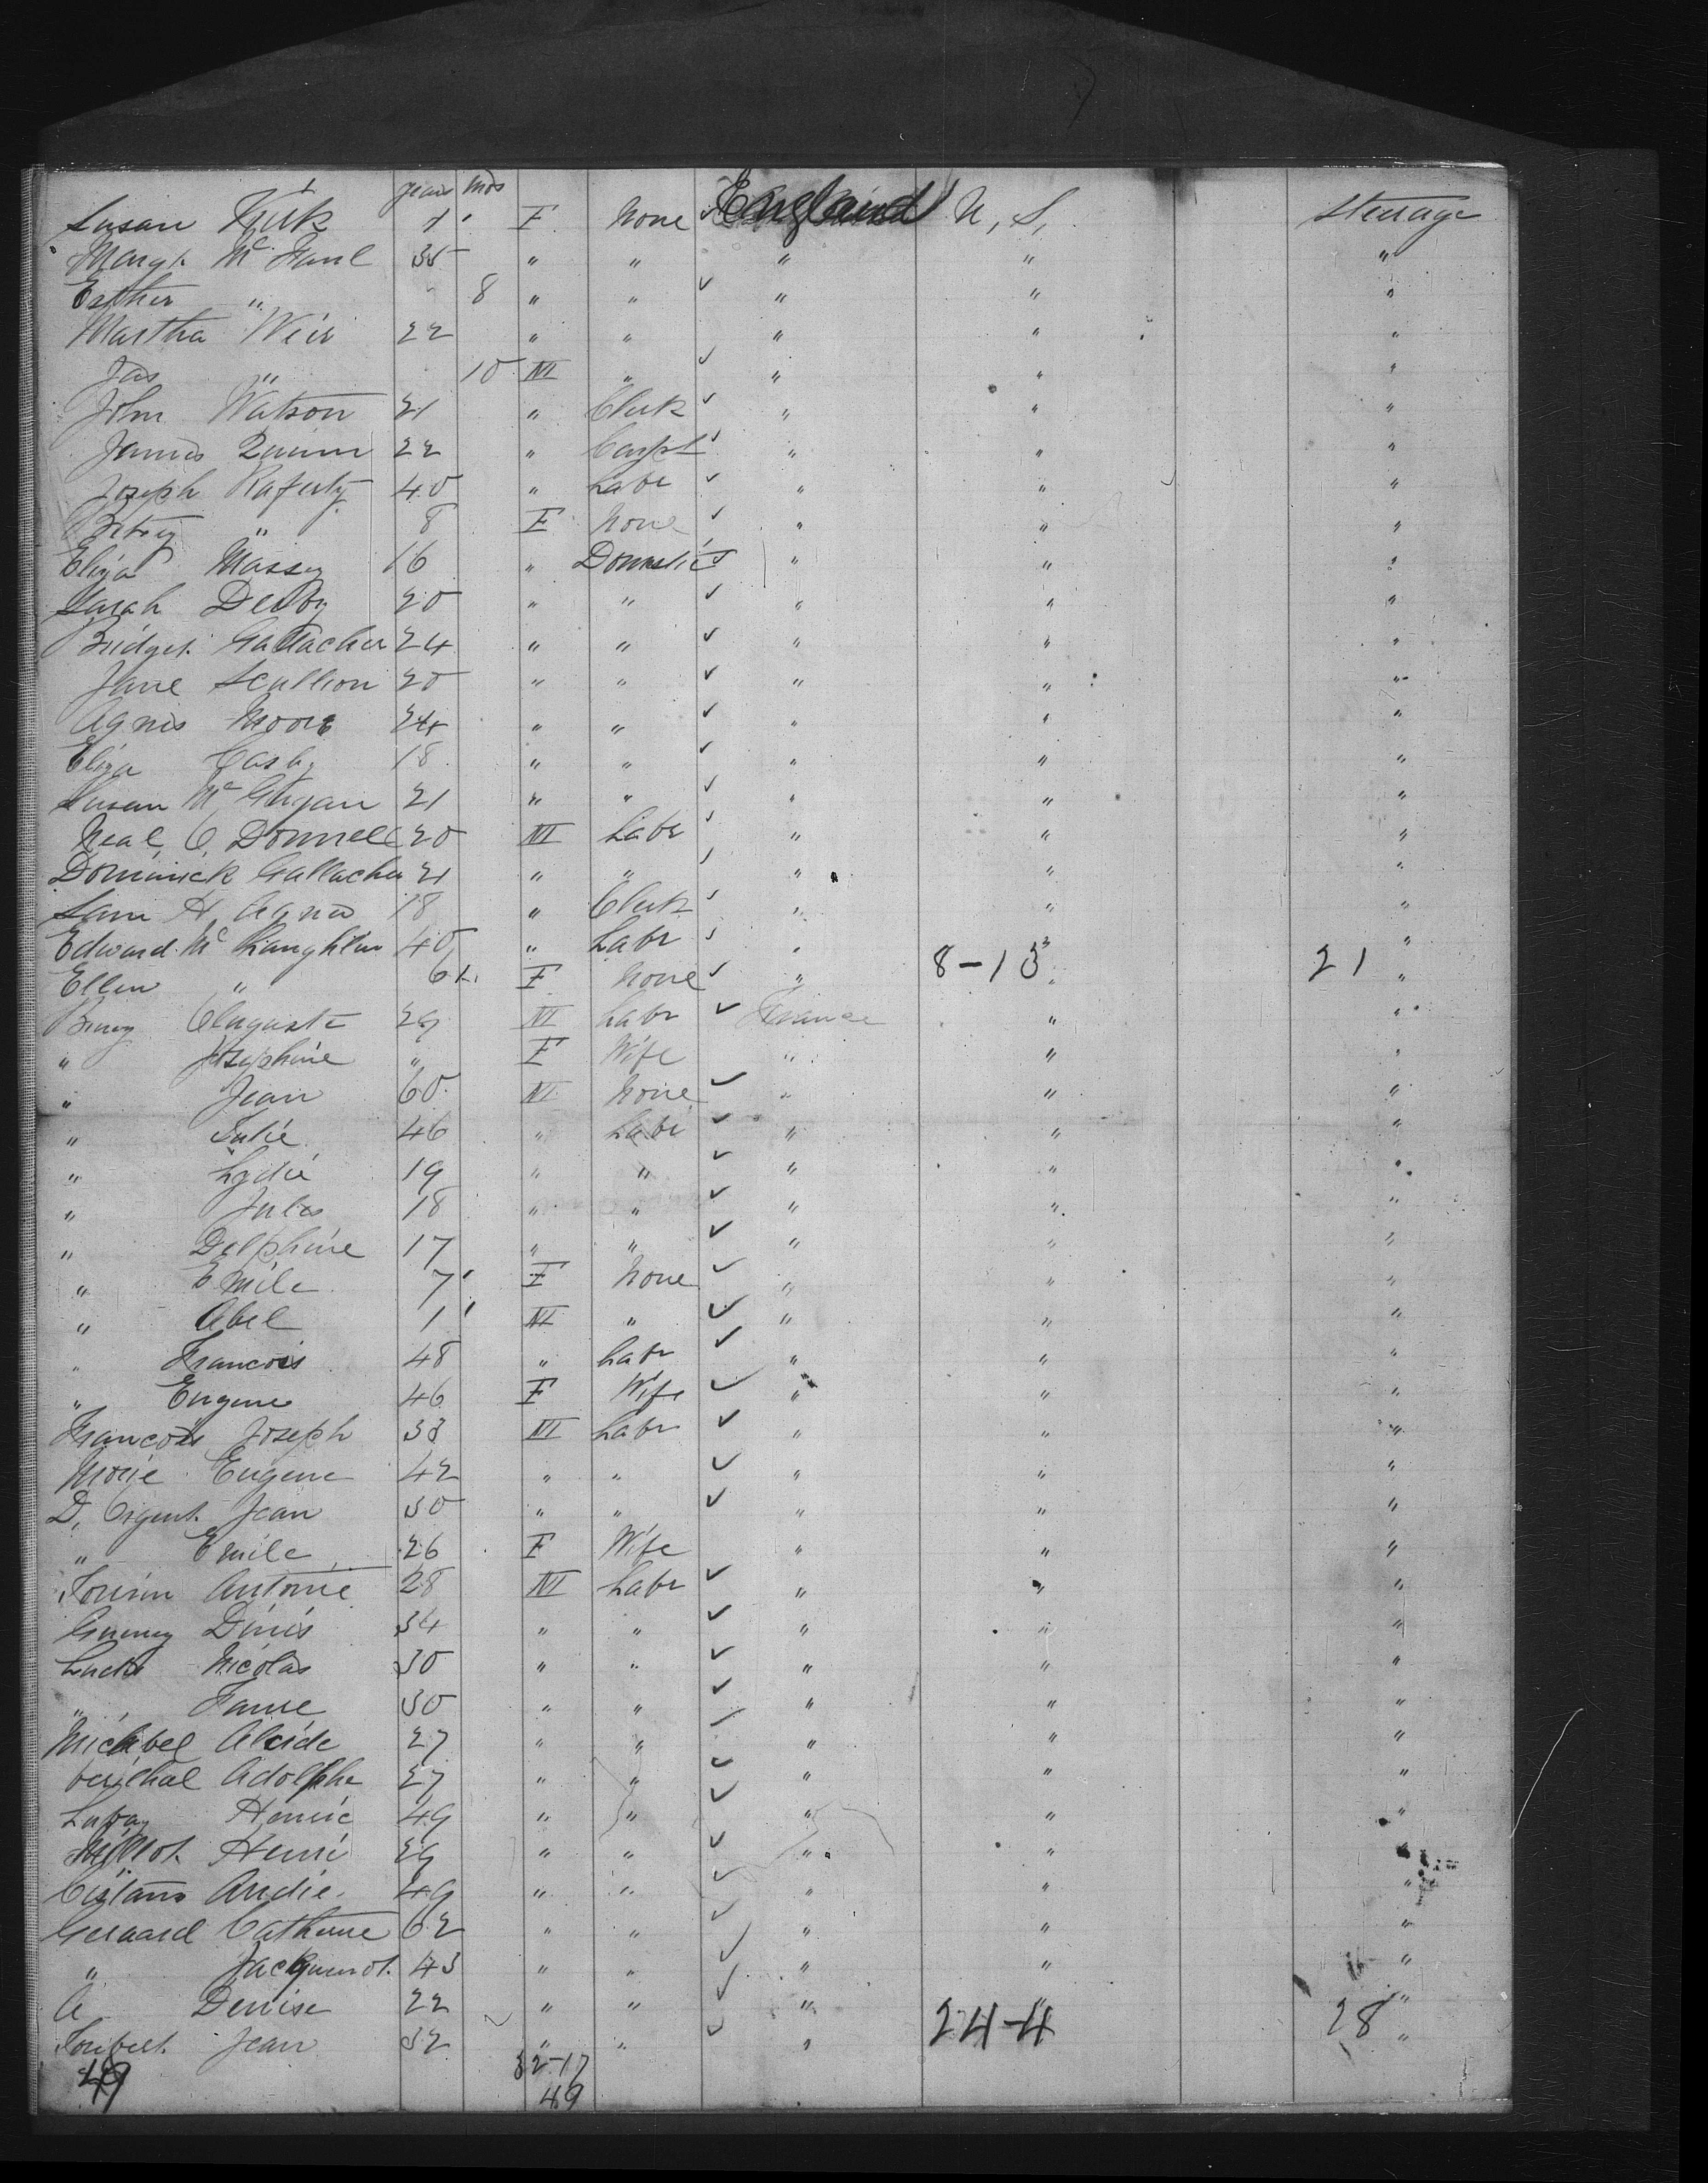 years mos
Susan Kirk 1 F None England U, S, Steerage
Margt. Mc Faul 35 " " " " "
Esther " 8 " " " " "
Martha Weir 22 " " " " "
Jas " 10 M " " " "
John Watson 21 " Clerk " " "
James Quinn 22 " Carpt " " "
Joseph Raferty 40 " Labr " " "
Betsy " 8 F None " " "
Eliza Massey 16 " Domestic " " "
Sarah Derby 20 " " " " "
Bridget. Gallacher 24 " " " " "
Jane Scullion 20 " " " " "
Agnes Moore 24 " " " " "
Eliza Casby 18 " " " " "
Susan Mc 21 " " " " "
Neal O, Donnell 20 M Labr " " "
Dominick Gallacher 21 " " " " "
Sam H, Agnew 18 " Clerk " " "
Edward. Mc Laughlin 40 " Labr " "
Ellen " 61 F None " 8-13 " 21 "
Auguste 29 M Labr France " "
" Josephine " F Wife " " "
" Jean 60 M None " " "
" Julie 46 " Labr " " "
" Lydie 19 " " " " "
" Jules 18 " " " " "
" Delphine 17 " " " " "
" Emile 7 F None " " "
" Abel 1 M " " " "
" Francois 48 " Labr " " "
" Eugene 46 F Wife " " "
Francois Joseph 33 M Labr " " "
Eugene 42 " " " " "
D, Jean 30 " " " " "
" Emile 26 F Wife " " "
Antoine 28 M Labr " " "
Denis 34 " " " " "
Nicolas 30 " " " " "
" 30 " " " " "
Alcide 27 " " " " "
Adolphe 27 " " " " "
49 " " " " "
Henri 29 " " " " "
Andre. 49 " " " " "
Geraard Catherine 62 " " " " "
" Jacquenot. 43 " " " " "
A Denise 22 " " " " "
Jean 32 " " " 24-4 28 "
49 32-17
49